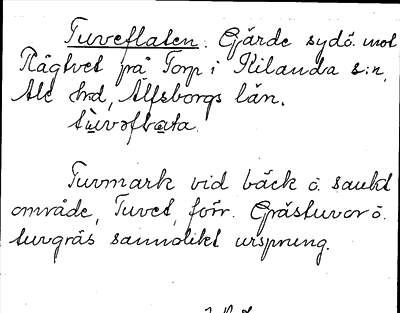 Tuveflaten. Gärde sydö. mot
Rågtvet på Torp i Kilanda s:n,
Ale hrd, Älfsborgs län.
Tuvmark vid bäck o. sankt
område, Tuvet, förr. Grästuvor o.
tuvgräs sannolikt ursprung.